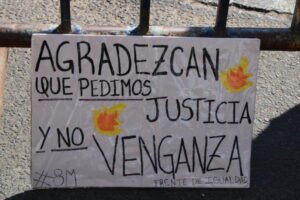 AGRADEZCAN
QUE PEDIMOS
JUSTICIA
Y NO
VENGANZA
#8M
FRENTE DE IGUALDAD